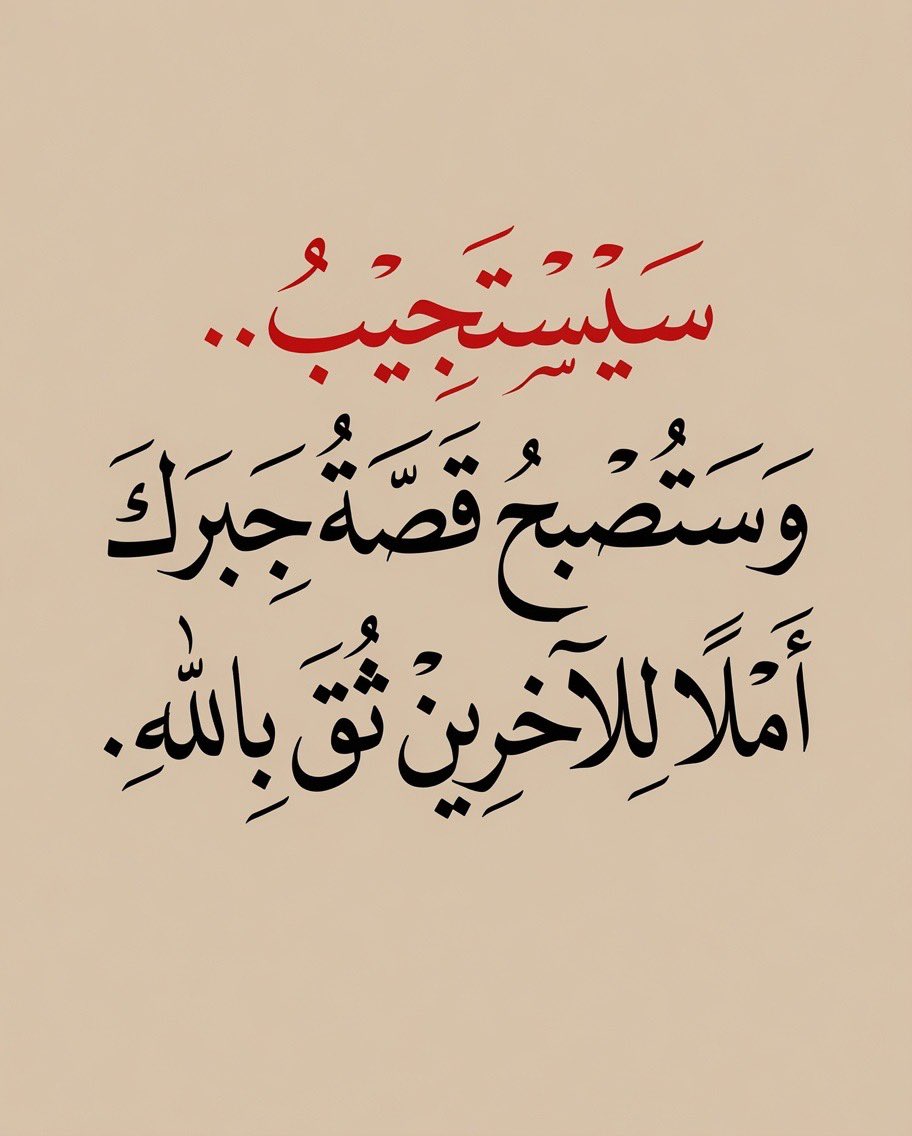 سَيْسْتَجِيْبُ..
وَسَتُصْبحُ قَصَّةُ جَِبرَكَ
أَمْلًا لِلآخرِينْ ثُقَ بِاللّٰهِ.